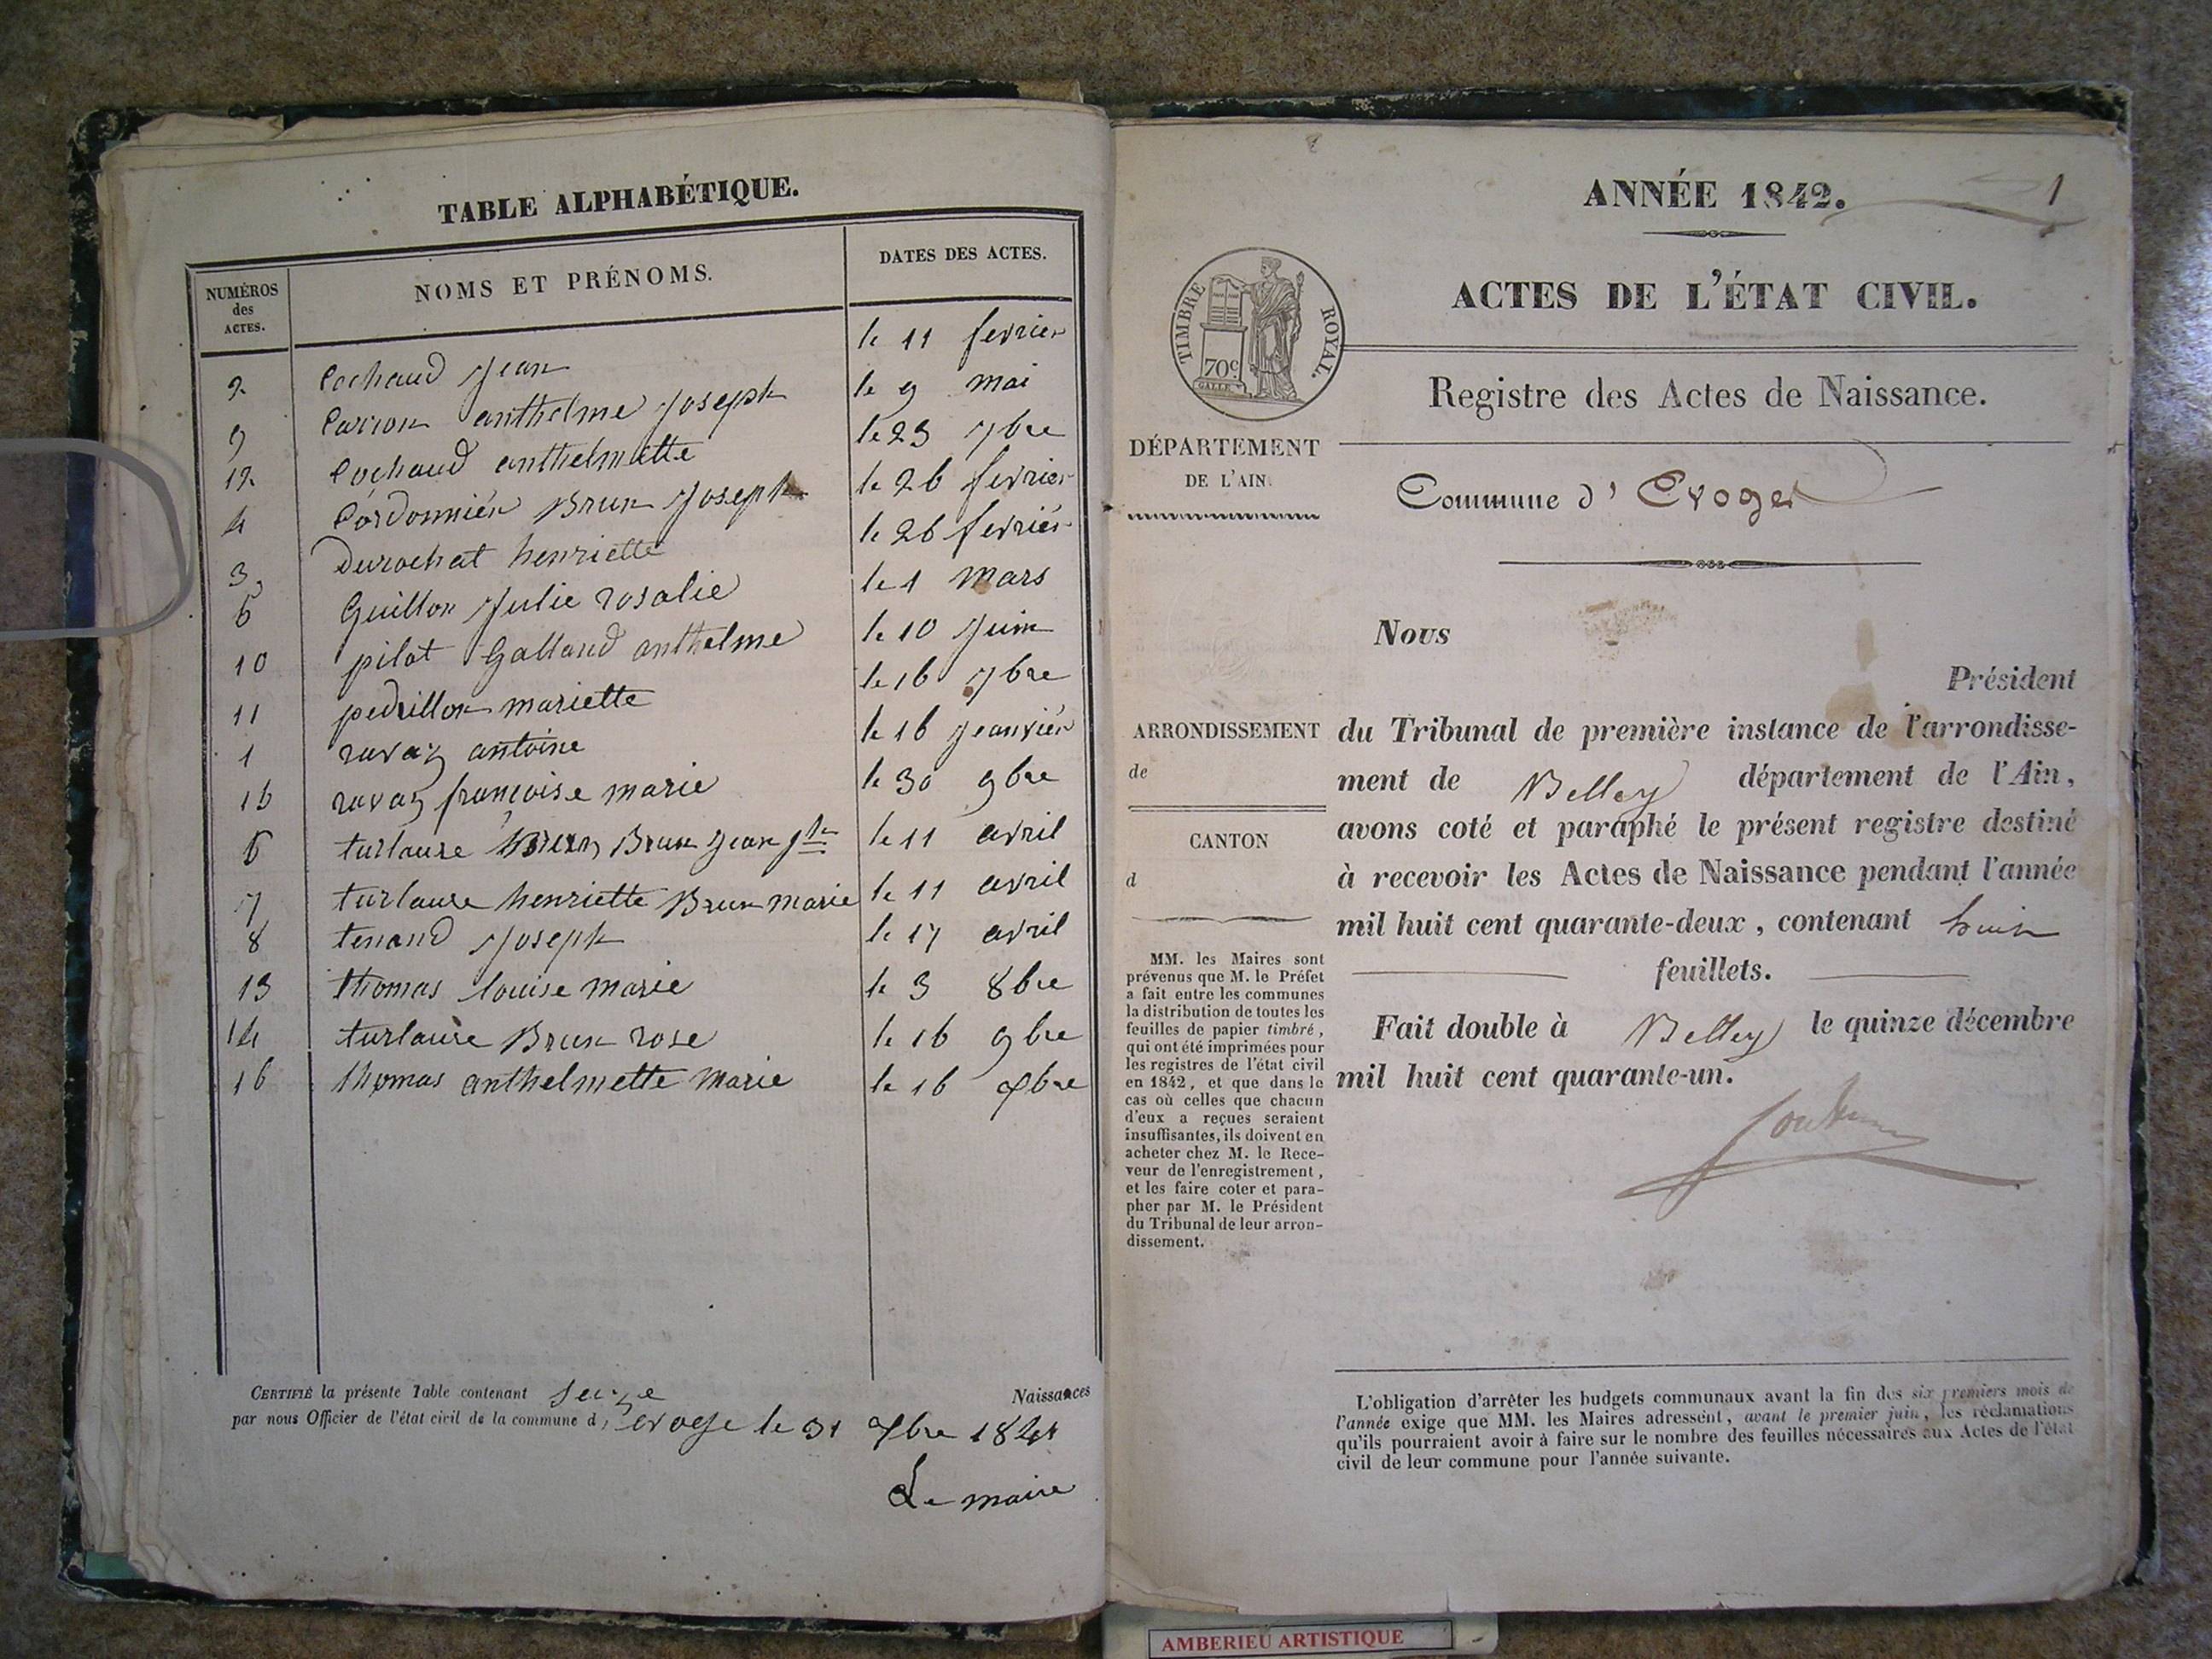 TABLE ALPHABÉTIQUE.
NUMÉROS des ACTES. NOMS ET PRÉNOMS. DATES DES ACTES.
2 Cochaud Jean le 11 fevrier
9 Carron anthelme Joseph le 9 mai
12 Cochaud anthelmette le 23 7bre
4 Cordonniér Brun Joseph le 26 fevrier
3 Durochat henriette le 26 fevriér
5 Guillon Julie rosalie le 1 mars
10 pilot Galland anthelme le 10 Juin
11 pedrillon mariette le 16 7bre
1 ravaz antoine le 16 Jeanviér
15 ravaz françoise marie le 30 9bre
6 turlause Brun Jean le 11 avril
7 turlause henriette Brun marie le 11 avril
8 tenand Joseph le 17 avril
13 thomas louise marie le 3 8bre
14 turlause Brun rose le 16 9bre
16 thomas anthelmette marie le 16 Xbre
CERTIFIÉ la présente Table contenant seize Naissances
par nous Officier de l'état civil de la commune d, evoge le 31 Xbre 1841
Le maire
ANNÉE 1842. 1
ACTES DE L'ÉTAT CIVIL.
TIMBRE ROYAL.
70c
GALLE
Registre des Actes de Naissance.
DÉPARTEMENT
DE L'AIN.
Commune d' Evoges
Nous
Président
ARRONDISSEMENT
de
CANTON
d
du Tribunal de première instance de l'arrondisse-
ment de Belley département de l'Ain,
avons coté et paraphé le présent registre destiné
à recevoir les Actes de Naissance pendant l'année
mil huit cent quarante-deux, contenant huit
feuillets.
Fait double à Belley le quinze décembre
mil huit cent quarante-un.
MM. les Maires sont
prévenus que M. le Préfet
a fait entre les communes
la distribution de toutes les
feuilles de papier timbré,
qui ont été imprimées pour
les registres de l'état civil
en 1842, et que dans le
cas où celles que chacun
d'eux a reçues seraient
insuffisantes, ils doivent en
acheter chez M. le Rece-
veur de l'enregistrement,
et les faire coter et para-
pher par M. le Président
du Tribunal de leur arron-
dissement.
L'obligation d'arrêter les budgets communaux avant la fin des six premiers mois de
l'année exige que MM. les Maires adressent, avant le premier juin, les réclamations
qu'ils pourraient avoir à faire sur le nombre des feuilles nécessaires aux Actes de l'état
civil de leur commune pour l'année suivante.
AMBERIEU ARTISTIQUE